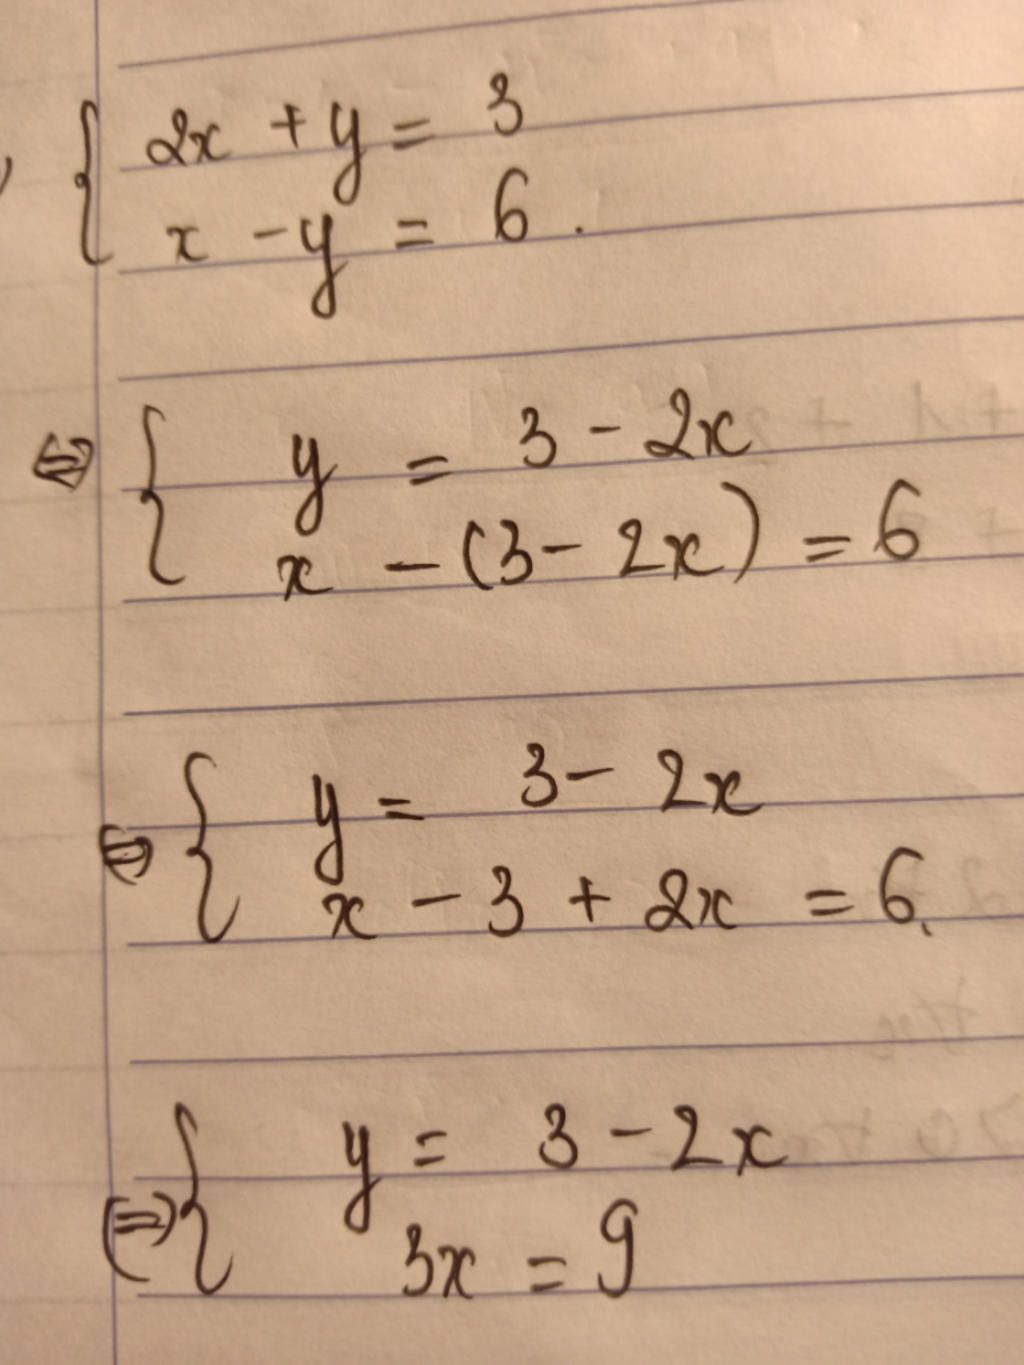 { 2x + y = 3
x - y = 6 .
⇔ { y = 3 - 2x
x - (3 - 2x) = 6
⇔ { y = 3 - 2x
x - 3 + 2x = 6.
⇔ { y = 3 - 2x
3x = 9